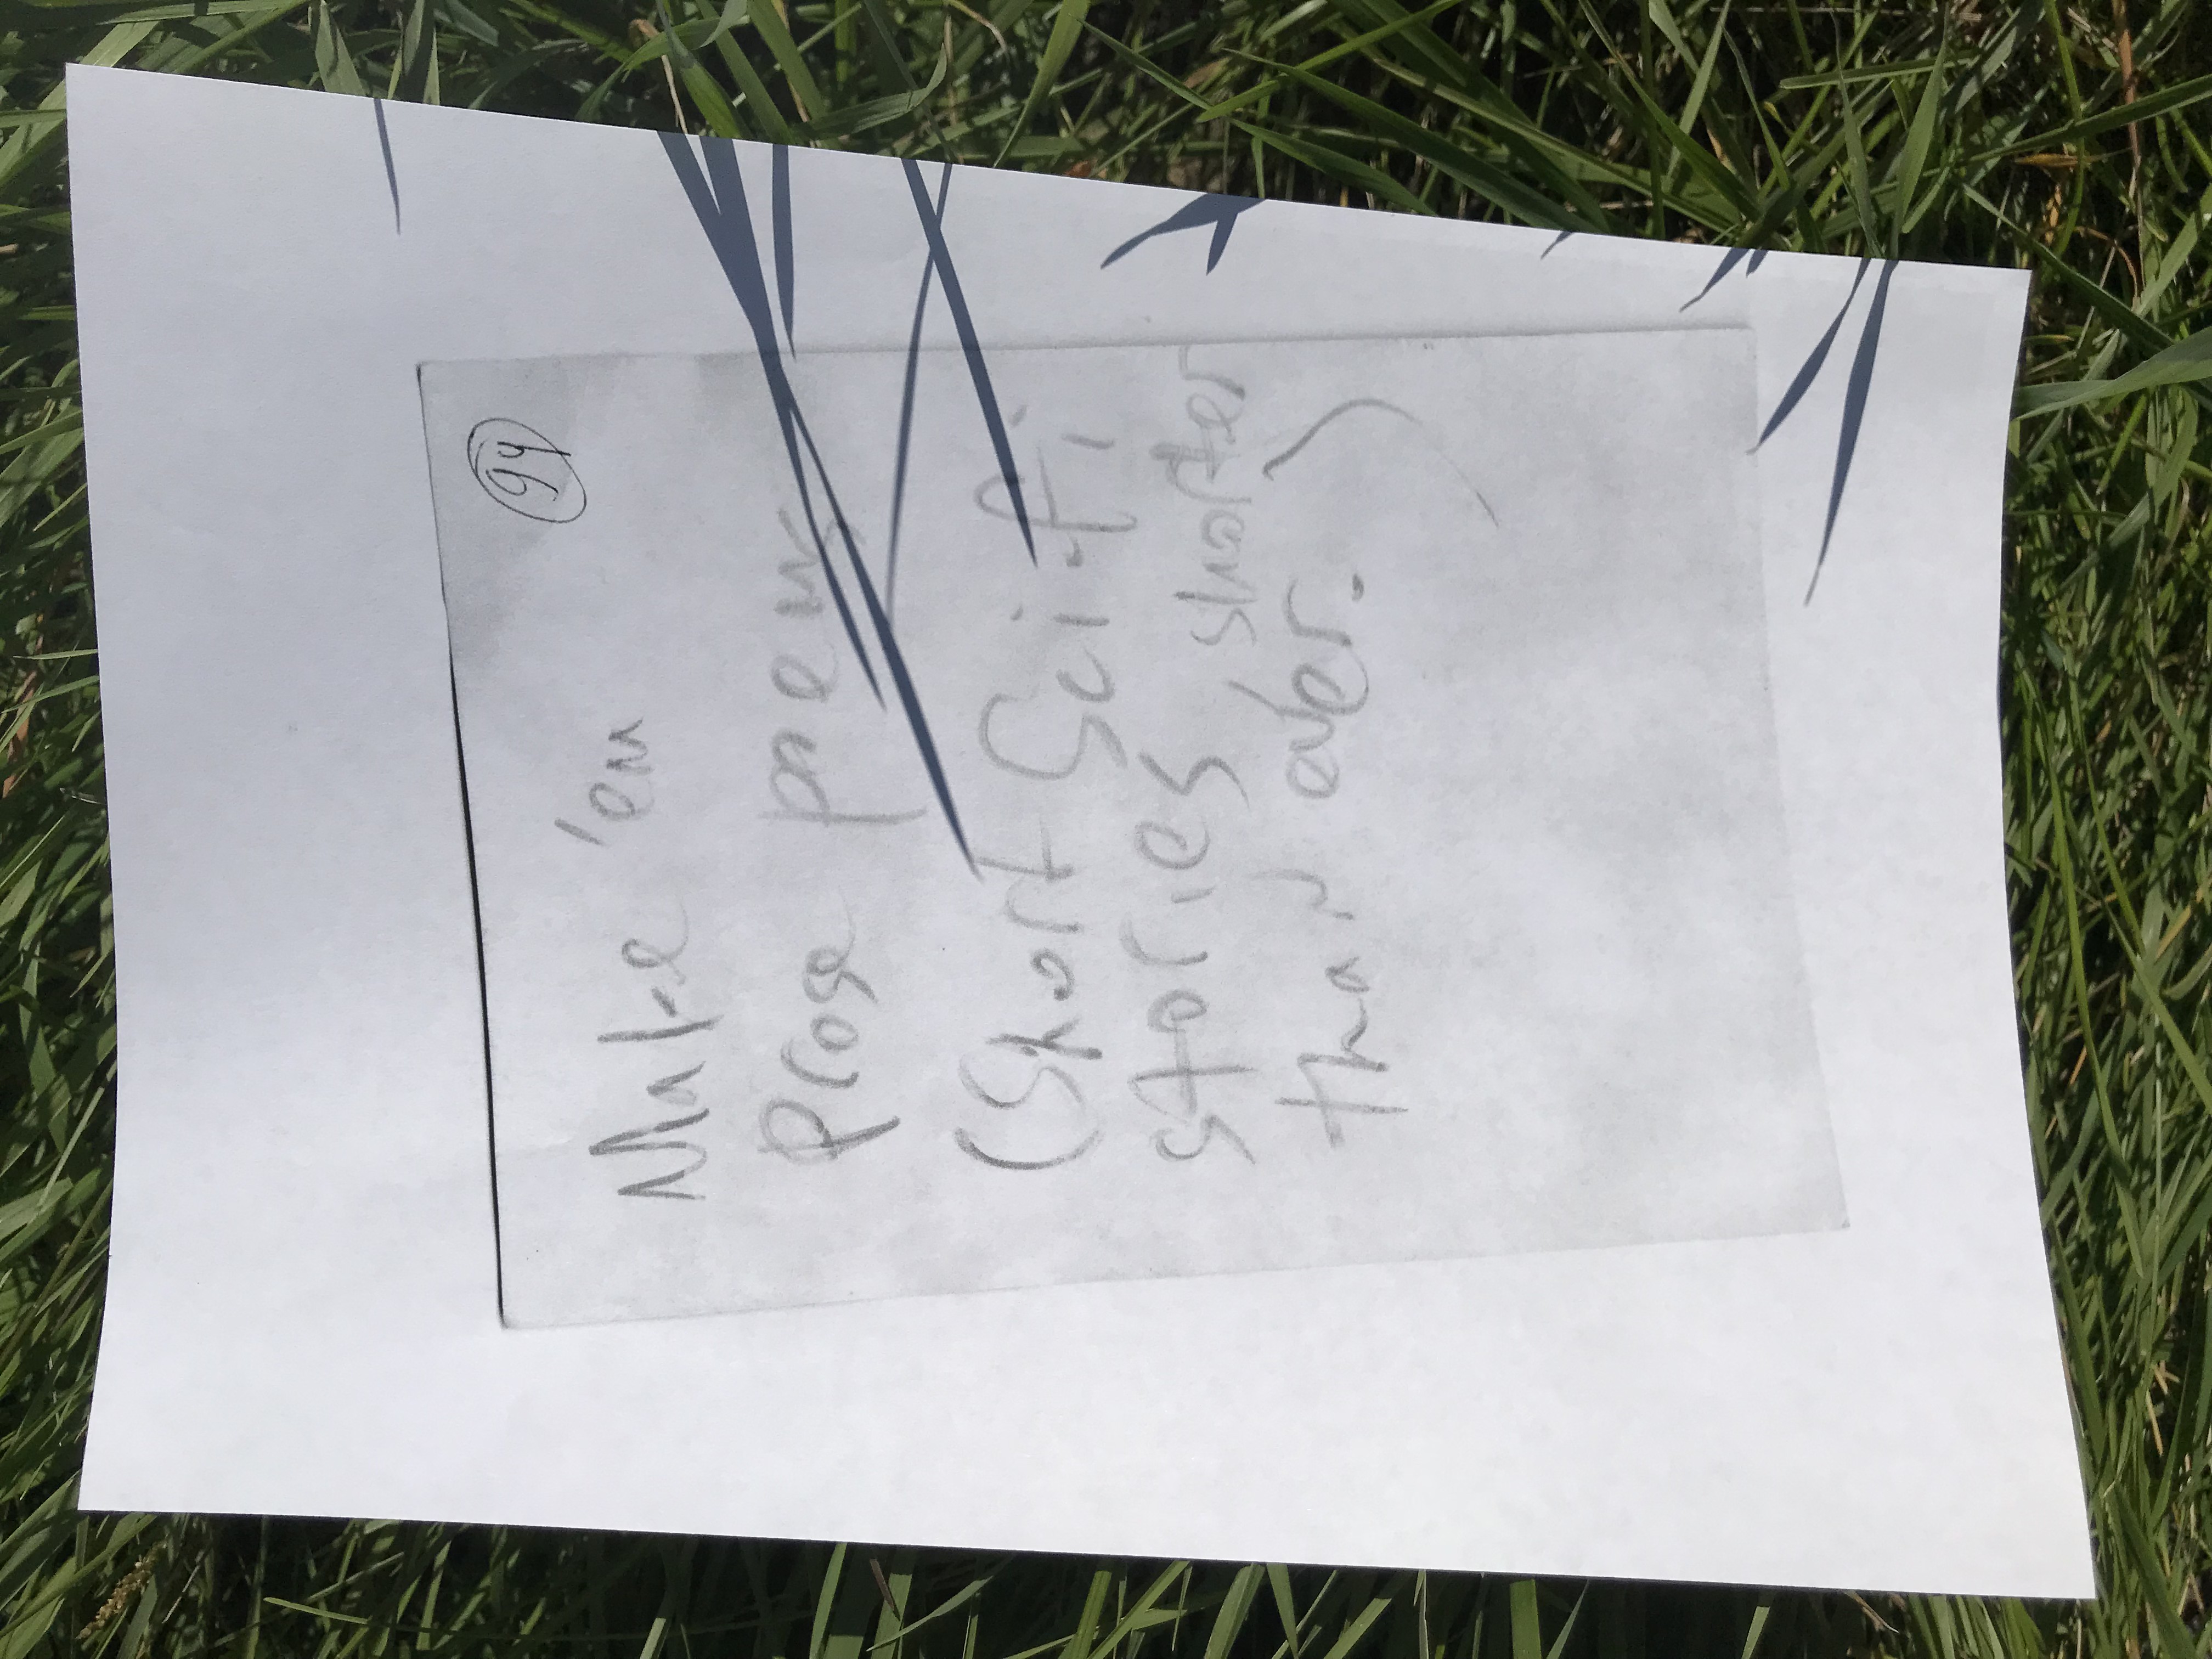 94
Make 'em
prose poems
(Short Sci-fi
stories, shorter
than ever.)